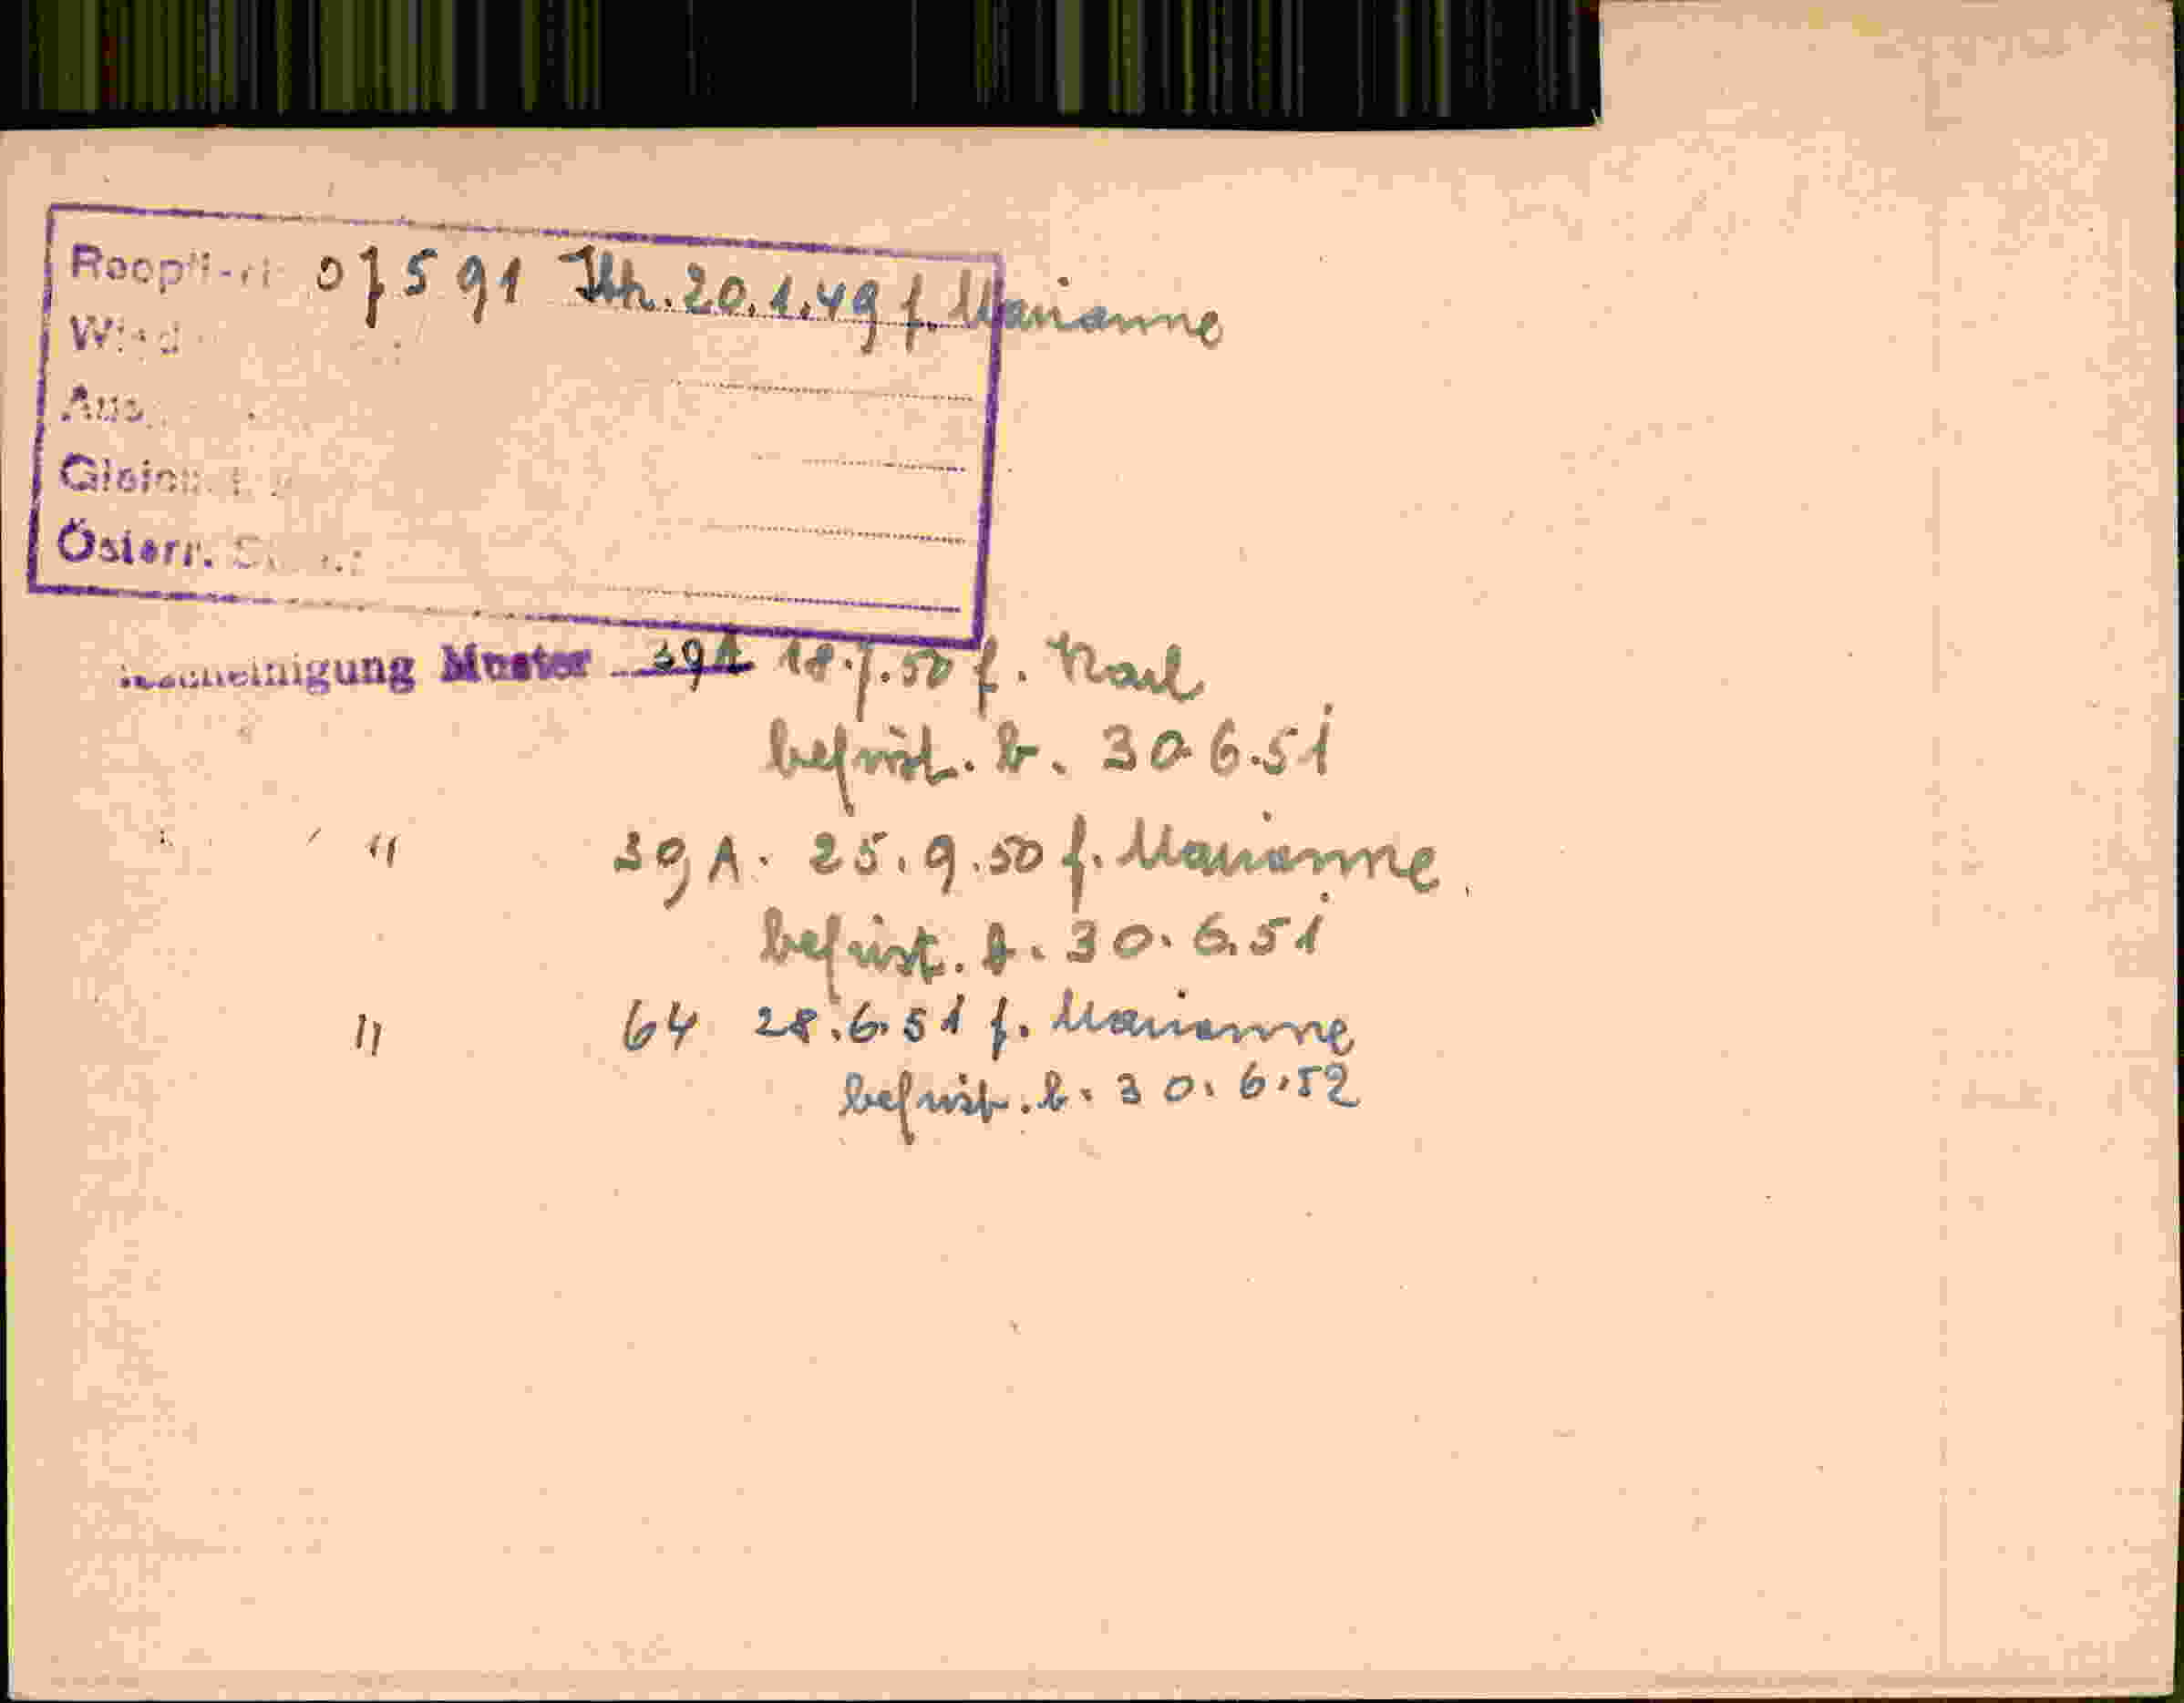 07591 Ikh. 20.1.49 f. Marianne
Österr.
Bescheinigung Muster 39A 18.7.50 f. Karl
befrist. b. 30.6.51
" 39A. 25.9.50 f. Marianne
befrist. b. 30.6.51
" 64 28.6.51 f. Marianne
befrist. b. 30.6.52